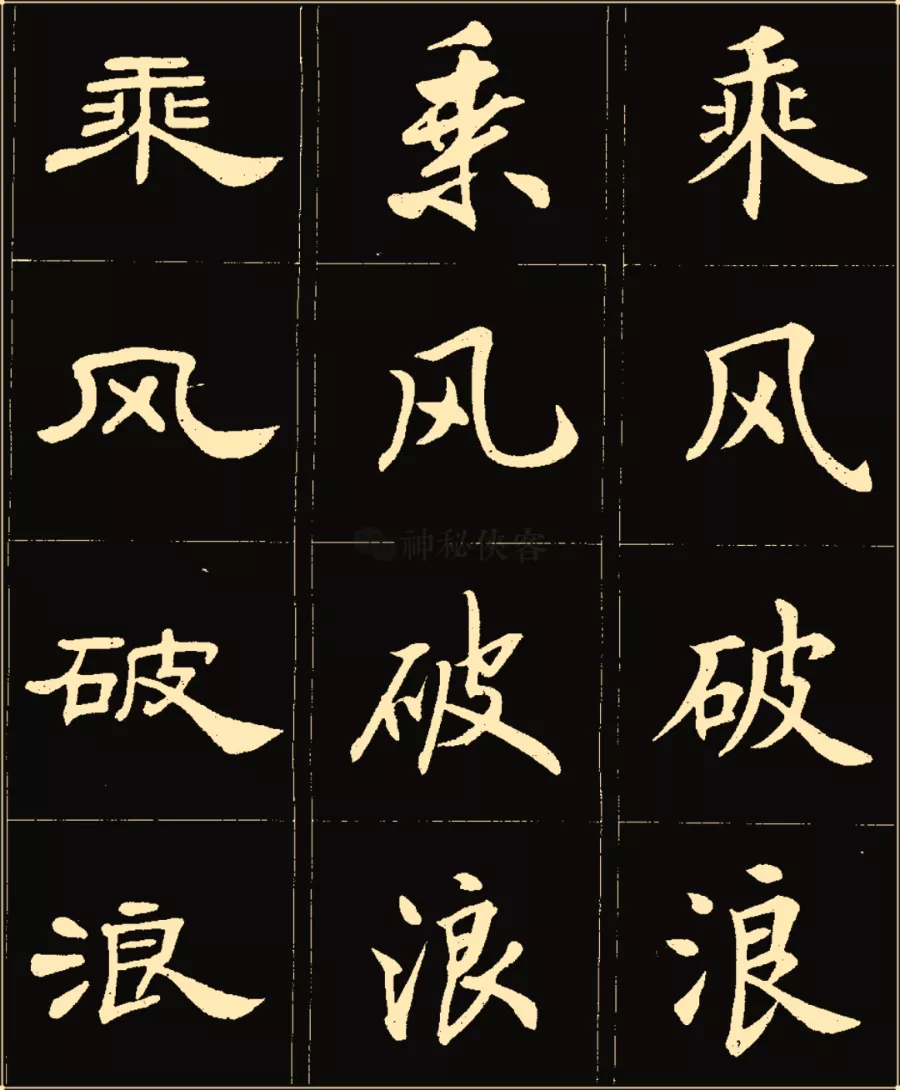 乘 乘 乘
风 风 风
破 破 破
浪 浪 浪
神秘侠客